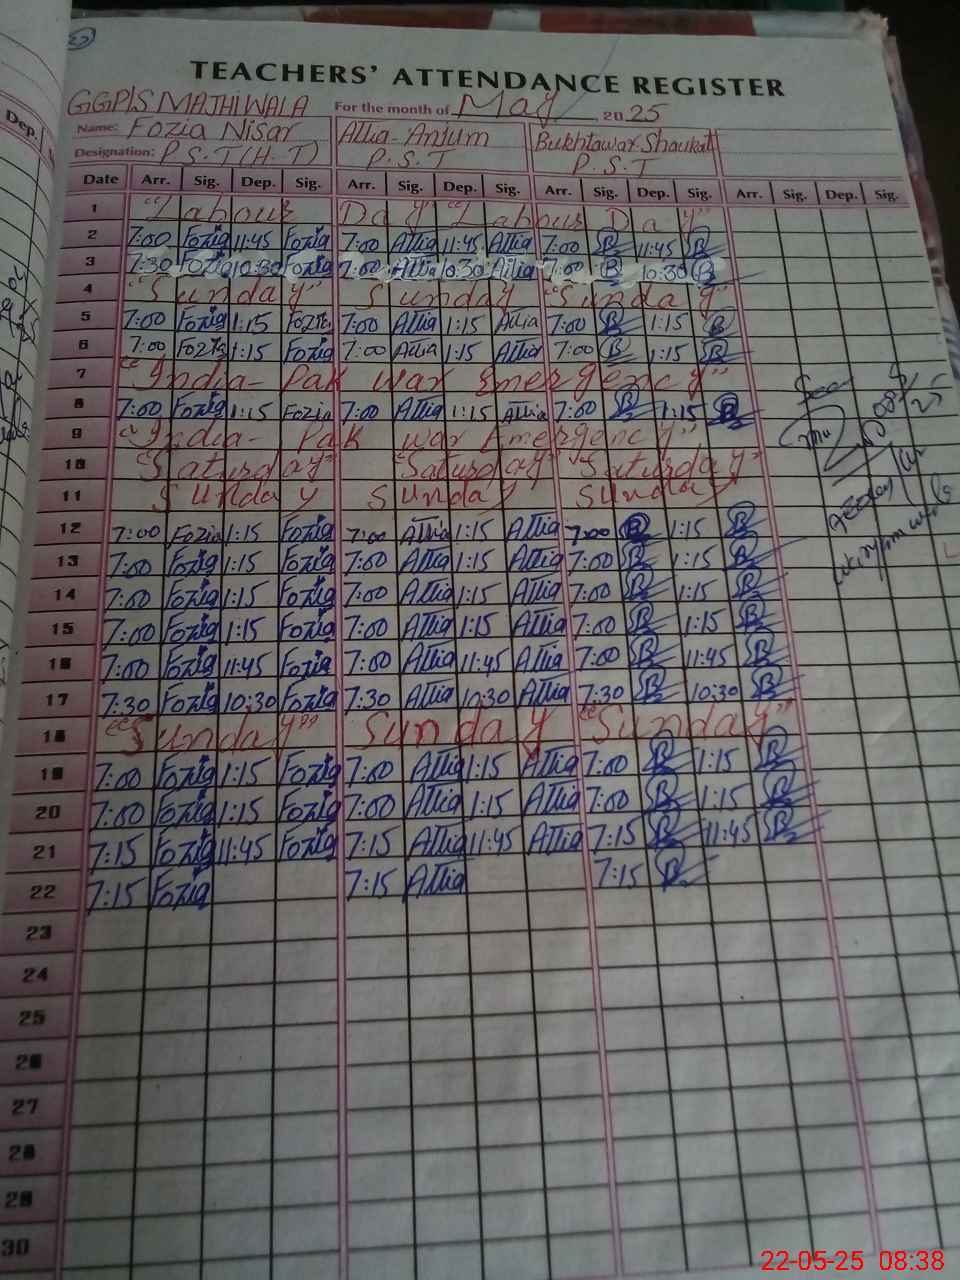 TEACHERS' ATTENDANCE REGISTER
GGP/S MATHIWALA For the month of May 2025
Name: Fozia Nisar Attia-Anjum Bukhtawar Shaukat
Designation: P.S.T (H.T) P.S.T P.S.T
Date Arr. Sig. Dep. Sig. Arr. Sig. Dep. Sig. Arr. Sig. Dep. Sig. Arr. Sig. Dep. Sig.
1 "Labour Day" "Labour Day"
2 7:00 Fozia 11:45 Fozia 7:00 Attia 11:45 Attia 7:00 B 11:45 B
3 7:30 Fozia 10:30 Fozia 7:00 Attia 10:30 Attia 7:00 B 10:30 B
4 "Sunday" Sunday "Sunday"
5 7:00 Fozia 1:15 Fozia 7:00 Attia 1:15 Attia 7:00 B 1:15 B
6 7:00 Fozia 1:15 Fozia 7:00 Attia 1:15 Attia 7:00 B 1:15 B
7 "India-Pak war Emergency"
8 7:00 Fozia 1:15 Fozia 7:00 Attia 1:15 Attia 7:00 B 1:15 B
9 "India-Pak war Emergency"
10 "Saturday" "Saturday" "Saturday"
11 Sunday Sunday Sunday
12 7:00 Fozia 1:15 Fozia 7:00 Attia 1:15 Attia 7:00 B 1:15 B
13 7:00 Fozia 1:15 Fozia 7:00 Attia 1:15 Attia 7:00 B 1:15 B
14 7:00 Fozia 1:15 Fozia 7:00 Attia 1:15 Attia 7:00 B 1:15 B
15 7:00 Fozia 1:15 Fozia 7:00 Attia 1:15 Attia 7:00 B 1:15 B
16 7:00 Fozia 11:45 Fozia 7:00 Attia 11:45 Attia 7:00 B 11:45 B
17 7:30 Fozia 10:30 Fozia 7:30 Attia 10:30 Attia 7:30 B 10:30 B
18 "Sunday" Sunday "Sunday"
19 7:00 Fozia 1:15 Fozia 7:00 Attia 1:15 Attia 7:00 B 1:15 B
20 7:00 Fozia 1:15 Fozia 7:00 Attia 1:15 Attia 7:00 B 1:15 B
21 7:15 Fozia 11:45 Fozia 7:15 Attia 11:45 Attia 7:15 B 11:45 B
22 7:15 Fozia 7:15 Attia 7:15 B
23
24
25
26
27
28
29
30
Dep.
22-05-25 08:38